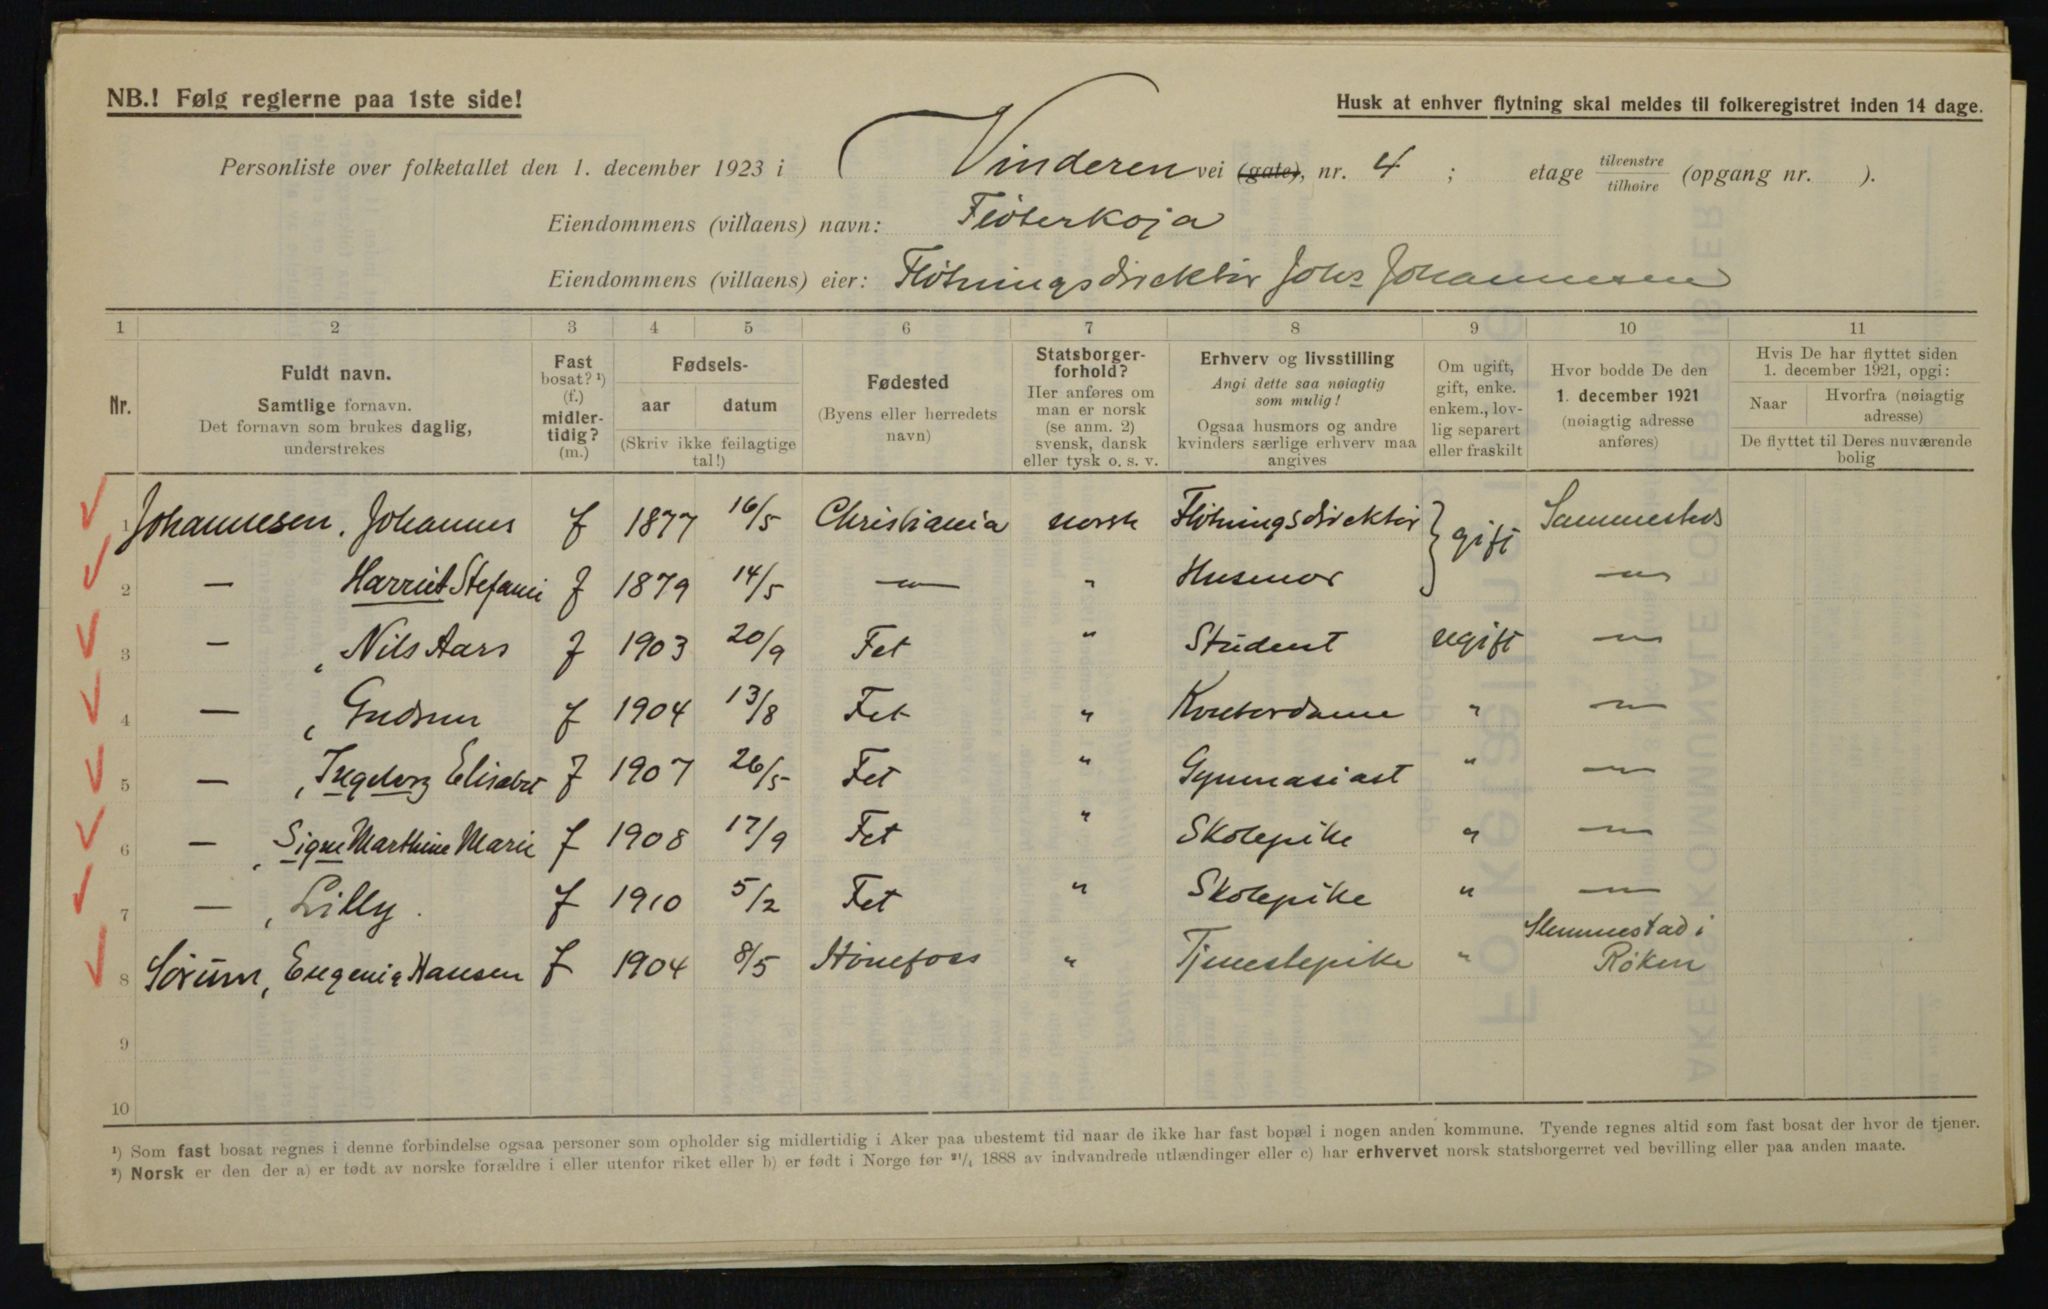 NB.! Følg reglerne paa 1ste side!
Husk at enhver flytning skal meldes til folkeregistret inden 14 dage.
Personliste over folketallet den 1. december 1923 i Vinderen vei (gate), nr. 4 ; etage tilvenstre tilhøire (opgang nr. ).
Eiendommens (villaens) navn: Fløterkoja
Eiendommens (villaens) eier: Fløtningsdirektør Johs Johannesen
1 2 3 4 5 6 7 8 9 10 11
Nr.
Fuldt navn.
Samtlige fornavn.
Det fornavn som brukes daglig,
understrekes
Fast
bosat? ¹)
(f.)
midler-
tidig?
(m.)
Fødsels-
aar datum
(Skriv ikke feilagtige
tal!)
Fødested
(Byens eller herredets
navn)
Statsborger-
forhold?
Her anføres om
man er norsk
(se anm. 2)
svensk, dansk
eller tysk o. s. v.
Erhverv og livsstilling
Angi dette saa nøiagtig
som mulig!
Ogsaa husmors og andre
kvinders særlige erhverv maa
angives
Om ugift,
gift, enke.
enkem., lov-
lig separert
eller fraskilt
Hvor bodde De den
1. december 1921
(nøiagtig adresse
anføres)
Hvis De har flyttet siden
1. december 1921, opgi:
Naar Hvorfra (nøiagtig
adresse)
De flyttet til Deres nuværende
bolig
1 Johannesen, Johannes f 1877 16/5 Christiania norsk Fløtningsdirektør } gift Sammesteds
2 — Harriet Stefanie f 1879 14/5 —"— " Husmor —"—
3 — , Nils Aars f 1903 20/9 Fet " Student ugift —"—
4 — , Gudrun f 1904 13/8 Fet " Kontordame " —"—
5 — , Ingeborg Elisabet f 1907 26/5 Fet " Gymnasiast " —"—
6 — , Signe Marthine Marie f 1908 17/9 Fet " Skolepike " —"—
7 — , Lilly . f 1910 5/2 Fet " Skolepike " —"—
8 Sørum, Eugenia Hansen f 1904 8/5 Hønefoss " Tjenestepike " Slemmestad i Røken
9
10
¹) Som fast bosat regnes i denne forbindelse ogsaa personer som opholder sig midlertidig i Aker paa ubestemt tid naar de ikke har fast bopæl i nogen anden kommune. Tyende regnes altid som fast bosat der hvor de tjener.
²) Norsk er den der a) er født av norske forældre i eller utenfor riket eller b) er født i Norge før ²¹/₄ 1888 av indvandrede utlændinger eller c) har erhvervet norsk statsborgerret ved bevilling eller paa anden maate.